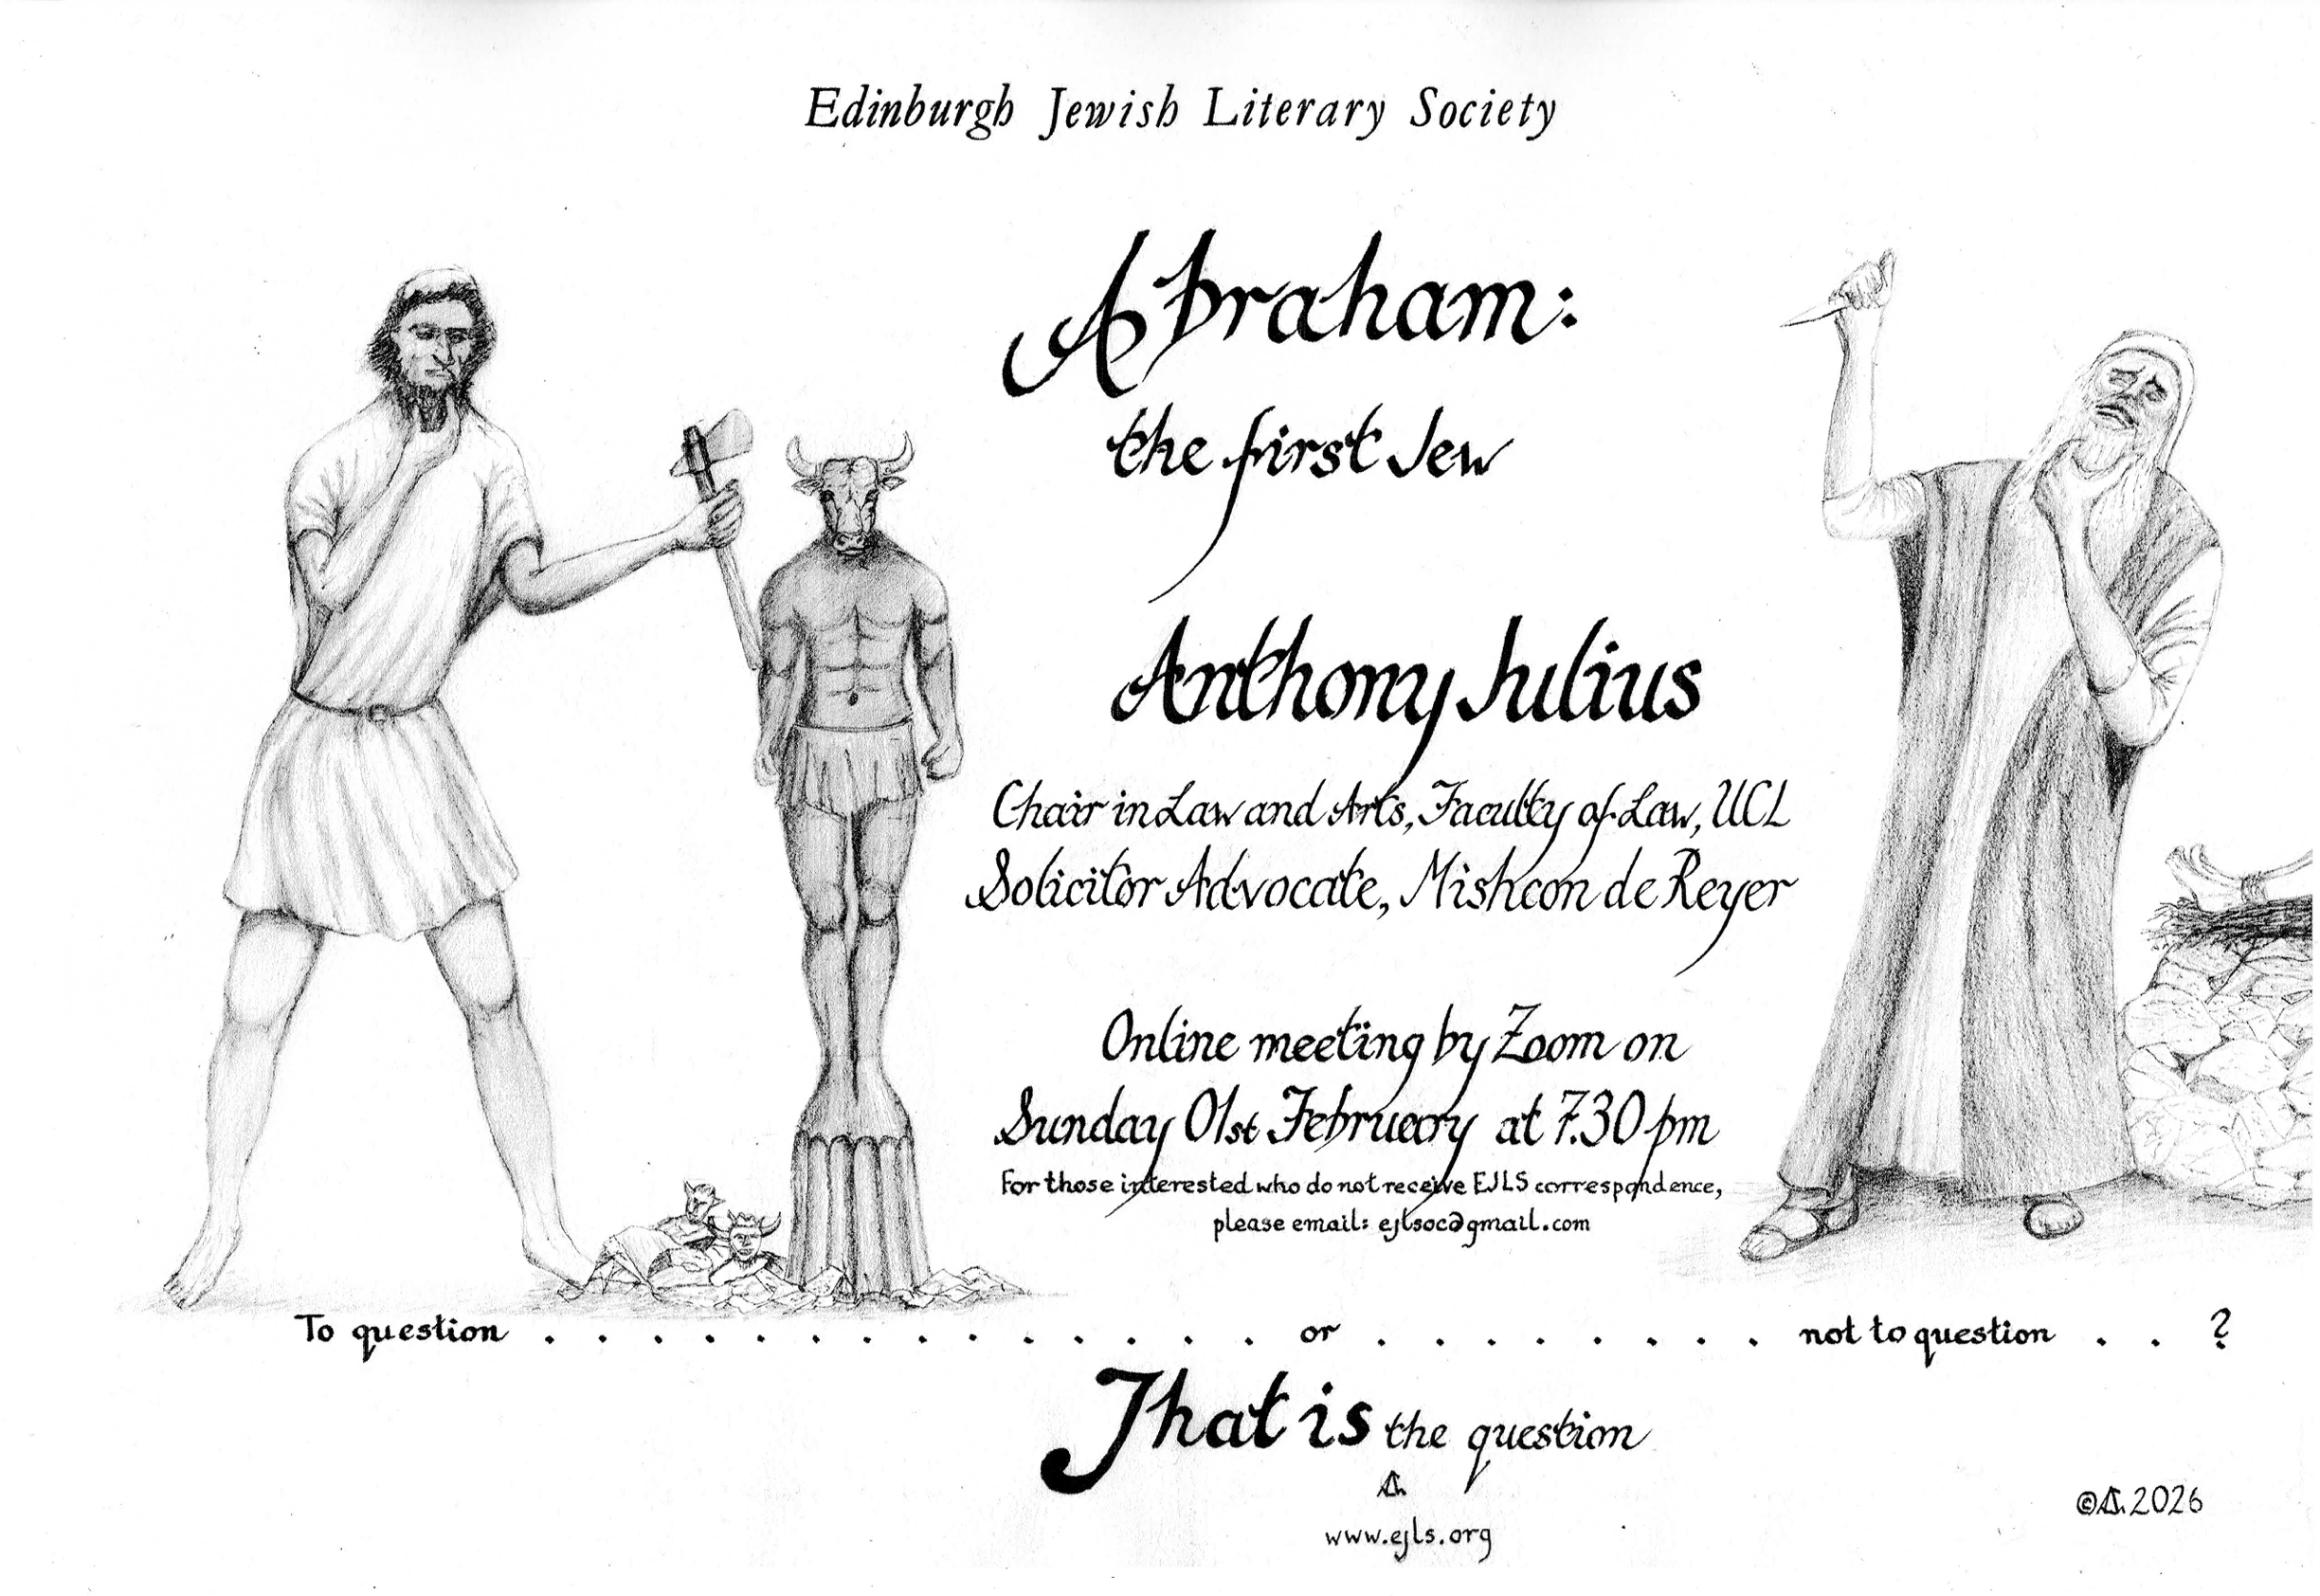 Edinburgh Jewish Literary Society
Abraham:
the first Jew
Anthony Julius
Chair in Law and Arts, Faculty of Law, UCL
Solicitor Advocate, Mishcon de Reyer
Online meeting by Zoom on
Sunday 01st February at 7.30 pm
For those interested who do not receive EJLS correspondence,
please email: ejlsoc@gmail.com
To question . . . . . . . . . . . . . . or . . . . . . . . not to question . . ?
That is the question
www.ejls.org
© 2026